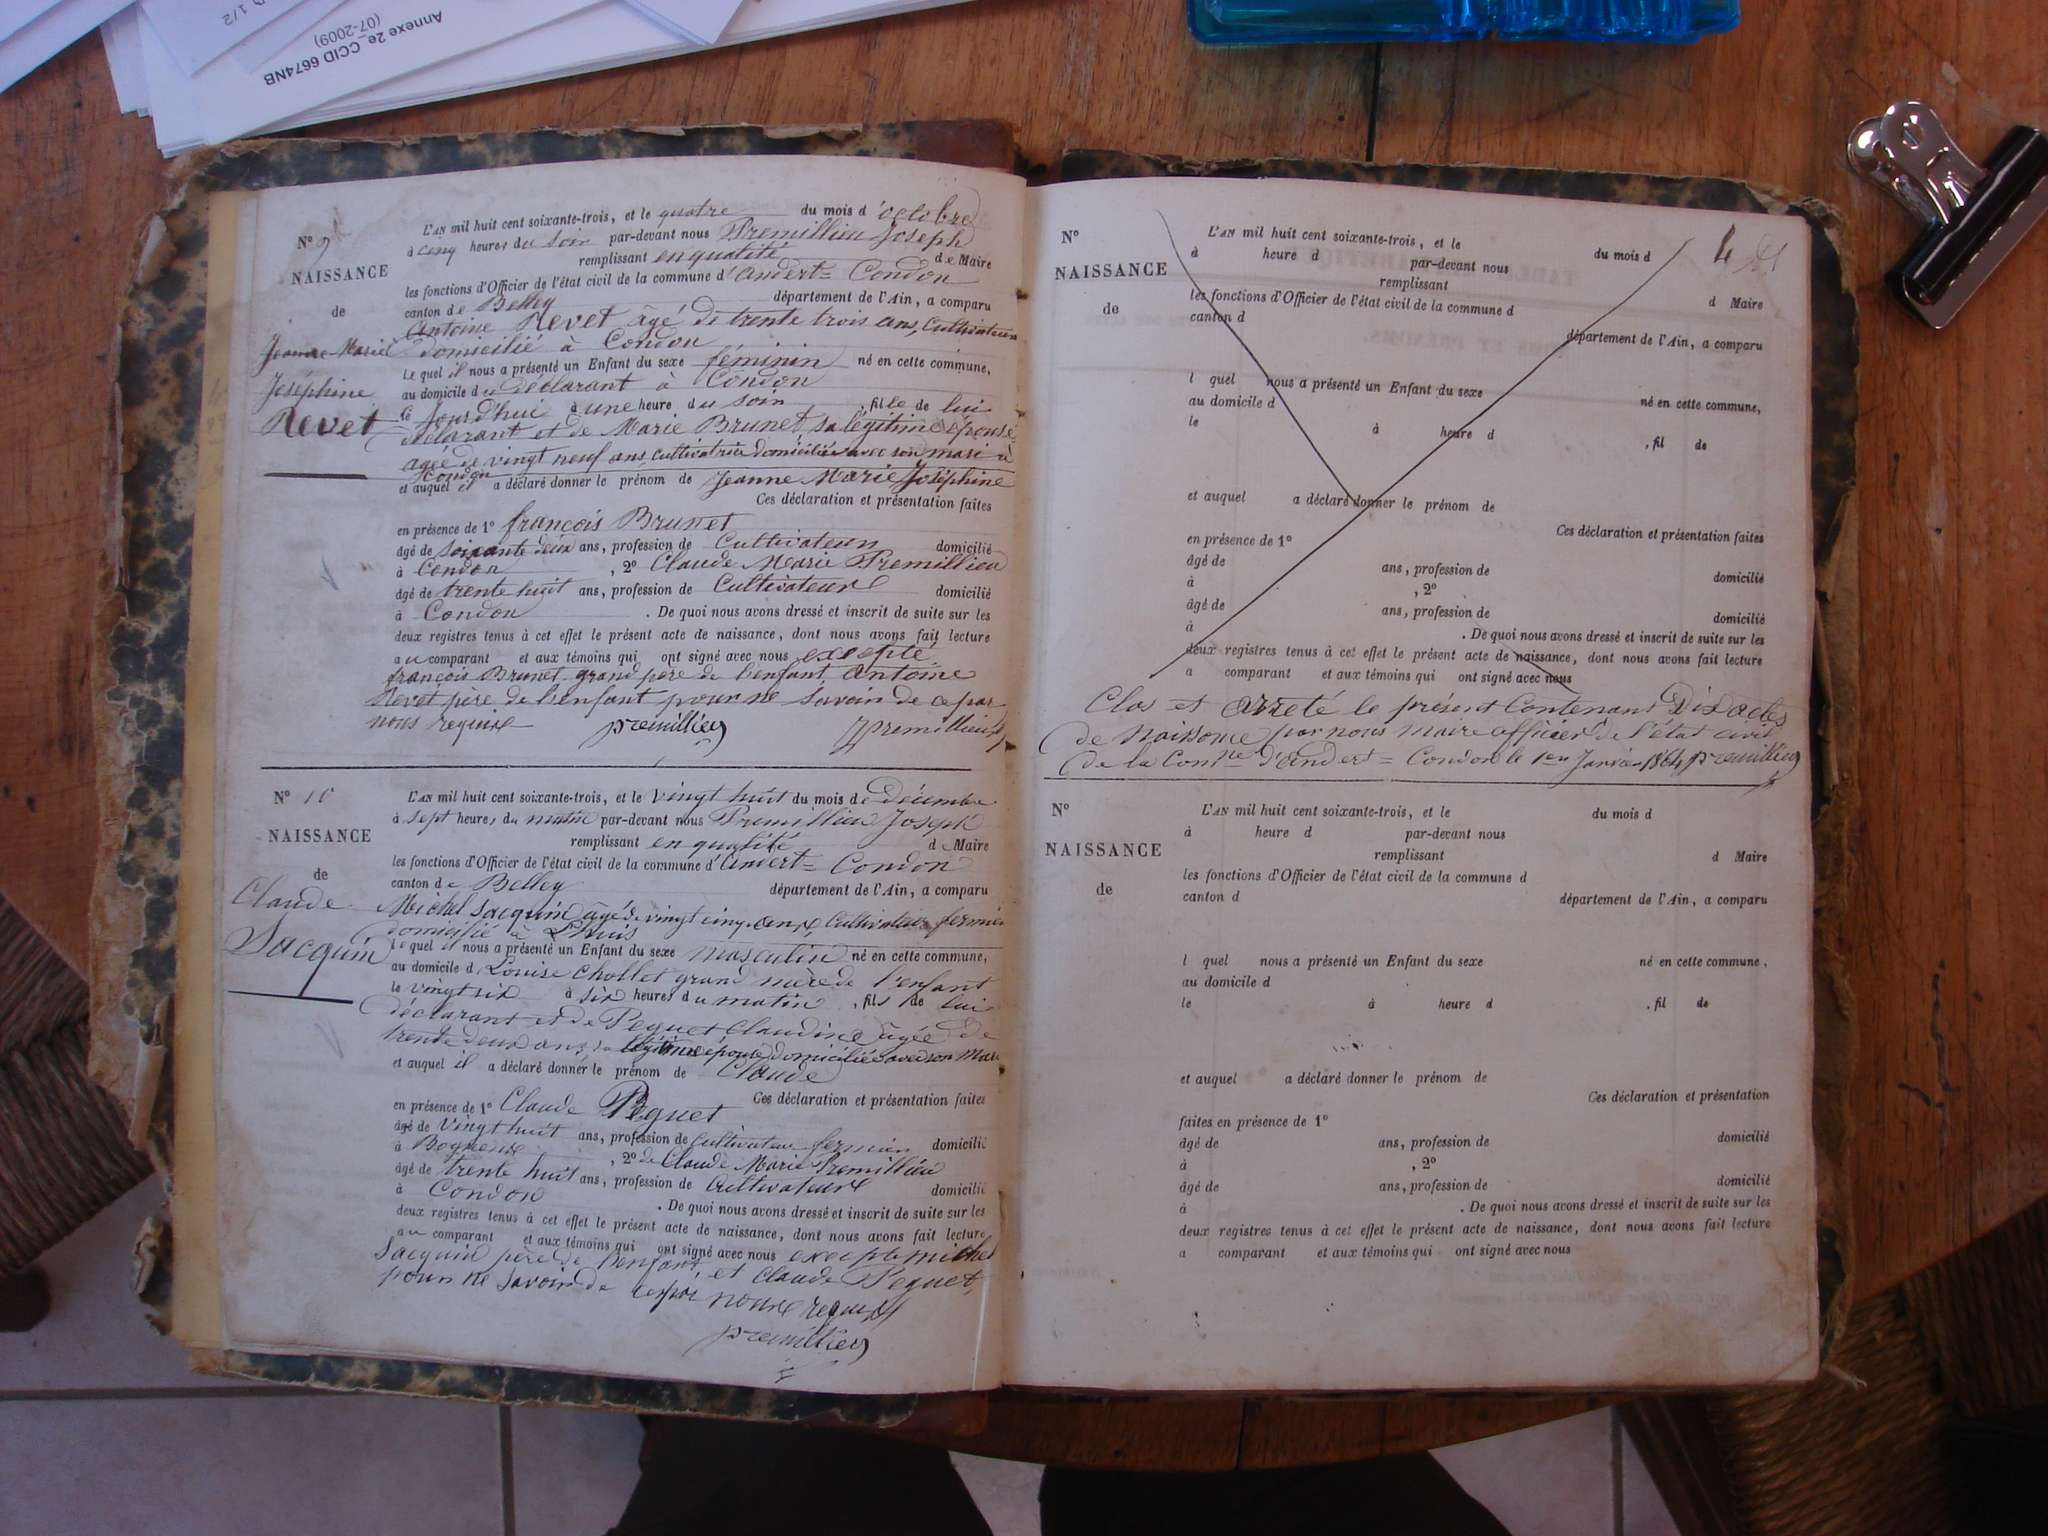 Annexe 2e_CCID 6674NB
(07-2009)
1/2
N° 9
NAISSANCE
de
Jeanne Marie
Joséphine
Revet
L'AN mil huit cent soixante-trois, et le quatre du mois d'octobre
à cinq heures du soir par-devant nous Premillieu Joseph
remplissant en qualité de Maire
les fonctions d'Officier de l'état civil de la commune d'andert = Condon
canton de Belley département de l'Ain, a comparu
Antoine Revet âgé de trente trois ans, Cultivateur
domicilié à Condon
lequel il nous a présenté un Enfant du sexe féminin né en cette commune,
au domicile du déclarant à Condon
le Jourd'hui à une heure du soir, fille de lui
déclarant et de Marie Brunet sa légitime épouse
agée de vingt neuf ans cultivatrice domiciliée avec son mari à
Condon
et auquel il a déclaré donner le prénom de Jeanne Marie Joséphine
Ces déclaration et présentation faites
en présence de 1° françois Brunet
âgé de soixante deux ans, profession de Cultivateur domicilié
à Condon, 2° Claude Marie Premillieu
âgé de trente huit ans, profession de Cultivateur domicilié
à Condon. De quoi nous avons dressé et inscrit de suite sur les
deux registres tenus à cet effet le présent acte de naissance, dont nous avons fait lecture
au comparant et aux témoins qui ont signé avec nous excepté
françois Brunet grand père de l'enfant, Antoine
Revet père de l'enfant pour ne savoir de ce par
nous requis
premillieu premillieu
N° 10
NAISSANCE
de
Claude
Jacquin
L'AN mil huit cent soixante-trois, et le vingt huit du mois de Décembre
à sept heures du matin par-devant nous Premillieu Joseph
remplissant en qualité de Maire
les fonctions d'Officier de l'état civil de la commune d'andert = Condon
canton de Belley département de l'Ain, a comparu
Michel Jacquin âgé de vingt cinq ans, Cultivateur fermier
domicilié à
lequel il nous a présenté un Enfant du sexe masculin né en cette commune,
au domicile d Louise Chollet grand mère de l'enfant
le vingt six à six heures du matin, fils de lui
déclarant et de Peguet Claudine âgée de
trente deux ans sa légitime épouse domiciliée avec son Mari
et auquel il a déclaré donner le prénom de Claude
Ces déclaration et présentation faites
en présence de 1° Claude Peguet
âgé de Vingt huit ans, profession de cultivateur fermier domicilié
à, 2° de Claude Marie Premillieu
âgé de trente huit ans, profession de Cultivateur domicilié
à Condon. De quoi nous avons dressé et inscrit de suite sur les
deux registres tenus à cet effet le présent acte de naissance, dont nous avons fait lecture
au comparant et aux témoins qui ont signé avec nous excepté michel
Jacquin père de l'enfant et Claude Peguet,
pour ne savoir de ce par nous requis
premillieu
4
N°
NAISSANCE
de
L'AN mil huit cent soixante-trois, et le du mois d
à heure d par-devant nous
remplissant d Maire
les fonctions d'Officier de l'état civil de la commune d
canton d département de l'Ain, a comparu
l quel nous a présenté un Enfant du sexe né en cette commune,
au domicile d
le à heure d , fil de
et auquel a déclaré donner le prénom de
Ces déclaration et présentation faites
en présence de 1°
âgé de ans, profession de domicilié
à , 2°
âgé de ans, profession de domicilié
à . De quoi nous avons dressé et inscrit de suite sur les
deux registres tenus à cet effet le présent acte de naissance, dont nous avons fait lecture
a comparant et aux témoins qui ont signé avec nous
Clos et arreté le présent Contenant Dix actes
de Naissance par nous maire officier de l'état civil
de la Comne d'andert = Condon le 1er Janvier 1864 premillieu
N°
NAISSANCE
de
L'AN mil huit cent soixante-trois, et le du mois d
à heure d par-devant nous
remplissant d Maire
les fonctions d'Officier de l'état civil de la commune d
canton d département de l'Ain, a comparu
l quel nous a présenté un Enfant du sexe né en cette commune,
au domicile d
le à heure d , fil de
et auquel a déclaré donner le prénom de
Ces déclaration et présentation
faites en présence de 1°
âgé de ans, profession de domicilié
à , 2°
âgé de ans, profession de domicilié
à . De quoi nous avons dressé et inscrit de suite sur les
deux registres tenus à cet effet le présent acte de naissance, dont nous avons fait lecture
a comparant et aux témoins qui ont signé avec nous